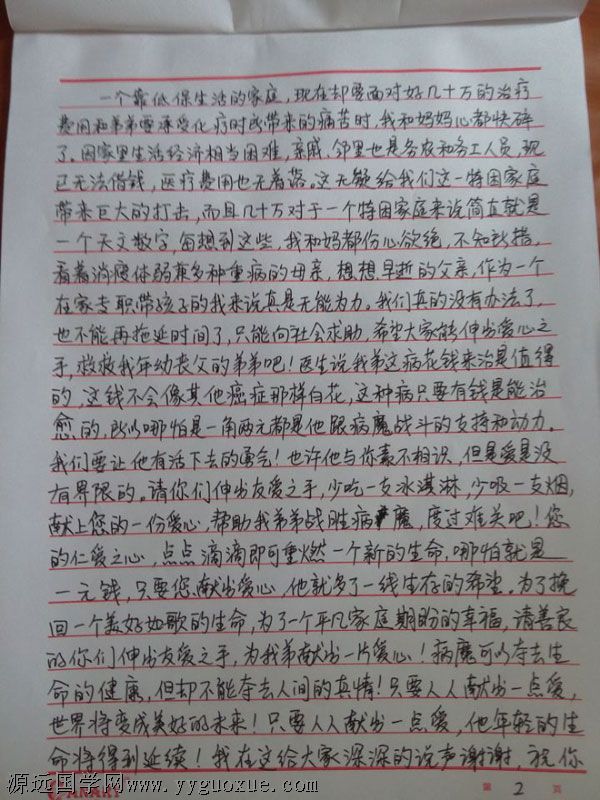 一个靠低保生活的家庭，现在却要面对好几十万的治疗
费用和弟弟要承受化疗时所带来的病苦时，我和妈妈心都快碎
了。因家里生活经济相当困难，亲戚、邻里也是务农和务工人员，现
已无法借钱，医疗费用也无着落。这无疑给我们这一特困家庭
带来巨大的打击，而且几十万对于一个特困家庭来说简直就是
一个天文数字，每想到这些，我和妈都伤心欲绝，不知所措，
看着消瘦体弱兼多种重病的母亲，想想早逝的父亲，作为一个
在家专职带孩子的我来说真是无能为力。我们真的没有办法了，
也不能再拖延时间了，只能向社会求助，希望大家能伸出爱心之
手，救救我年幼丧父的弟弟吧！医生说我弟这病花钱来治是值得
的，这钱不会像其他癌症那样白花，这种病只要有钱是能治
愈的，所以哪怕是一角两元都是他跟病魔战斗的支持和动力。
我们要让他有活下去的勇气！也许他与你素不相识，但是爱是没
有界限的。请你们伸出友爱之手，少吃一支冰淇淋，少吸一支烟，
献上您的一份爱心，帮助我弟弟战胜病魔，度过难关吧！您
的仁爱之心，点点滴滴即可重燃一个新的生命，哪怕就是
一元钱，只要您献出爱心，他就多了一线生存的希望。为了挽
回一个美好如歌的生命，为了一个平凡家庭期盼的幸福，请善良
的你们伸出友爱之手，为我弟献出一片爱心！病魔可以夺去生
命的健康，但却不能夺去人间的真情！只要人人献出一点爱，
世界将变成美好的未来！只要人人献出一点爱，他年轻的生
命将得到延续！我在这给大家深深的说声谢谢，祝你
第 2 页
源远国学网www.yyguoxue.com